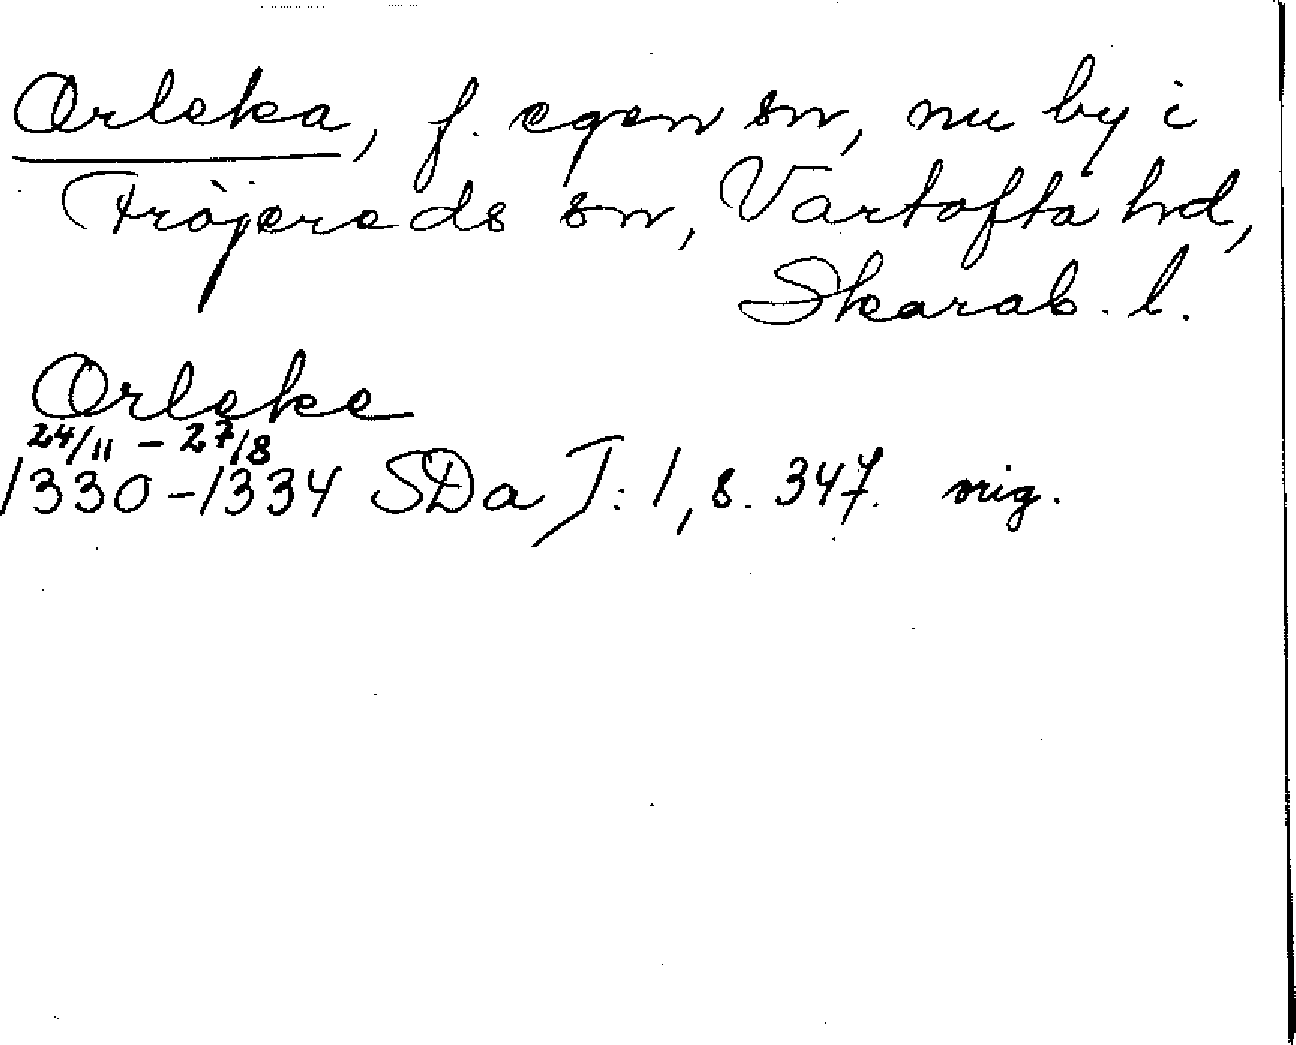 Orleka, f. egen sn, nu by i
Fröjereds sn, Vartofta hd,
Skarab. l.
Orleke
24/11 – 27/8
1330–1334 SDa I: 1, s. 347. mig.